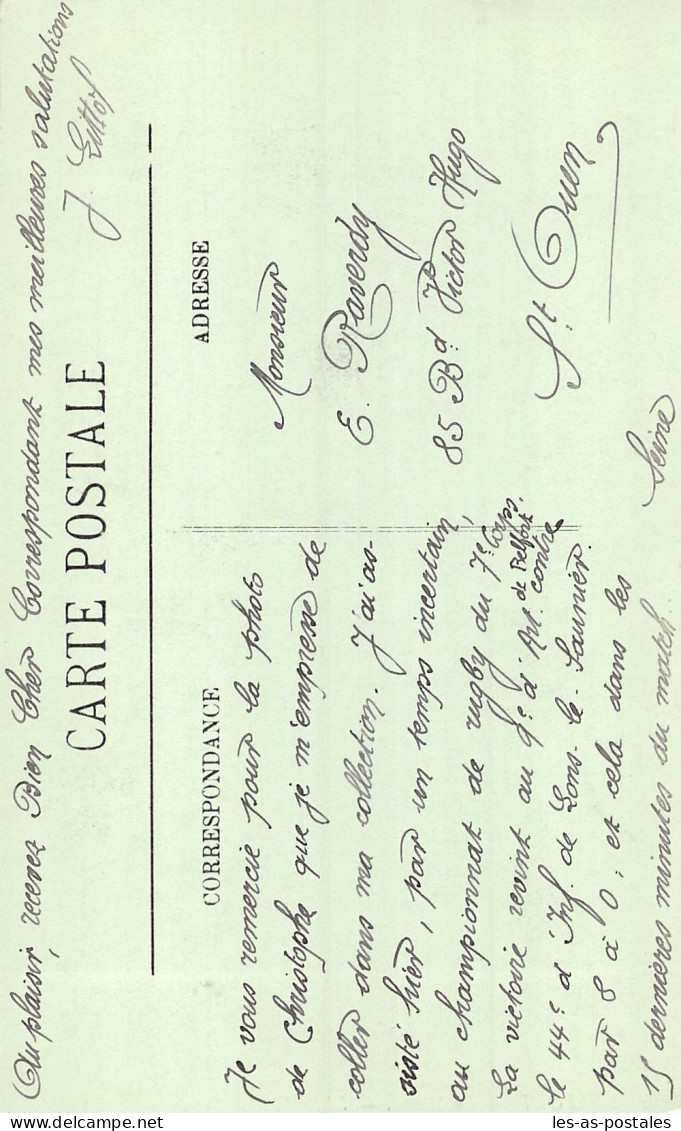 CARTE POSTALE
CORRESPONDANCE
Je vous remercie pour la photo
de Christophe que je m'empresse de
coller dans ma collection. J'ai as-
sisté hier, par un temps incertain,
au championnat de rugby du 7e Corps.
La victoire revint au 9e d'Art. de Belfort contre
le 44e d'Inf. de Lons-le-Saunier.
par 8 à 0; et cela dans les
15 dernières minutes du match.
Au plaisir, recevez Bien Cher Correspondant mes meilleures salutations
J.
ADRESSE
Monsieur
E. Raverdy
85 Bd. Victor Hugo
St. Ouen
Seine
les-as-postales